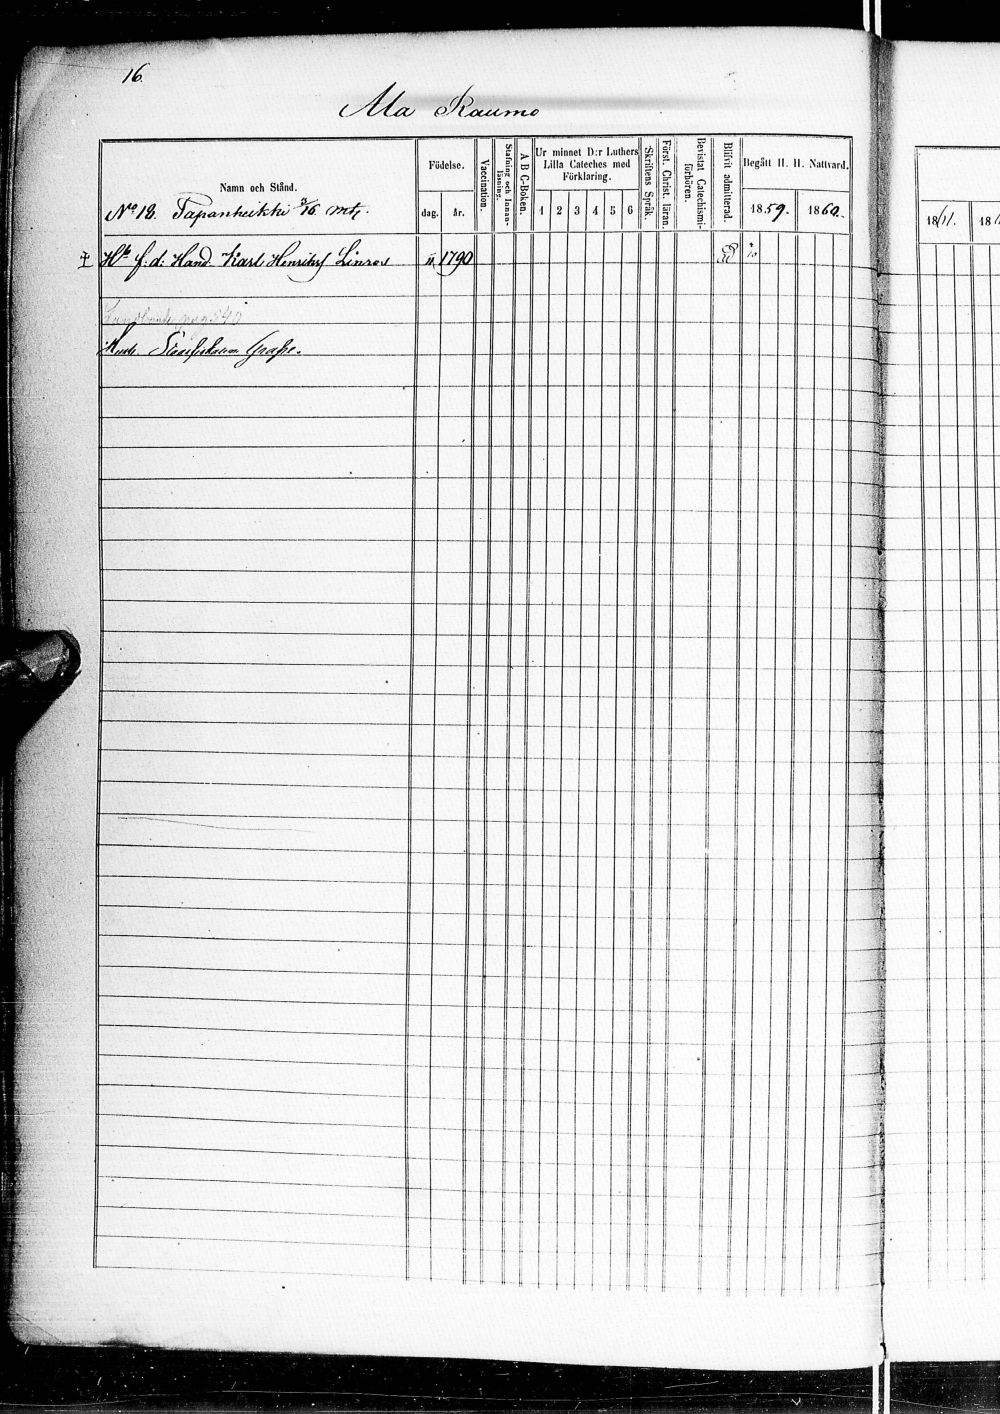 16.
Ala Raumo
Namn och Stånd.
Födelse.
dag.
år.
Vaccination.
Stafning och Innan-
läsning.
A B C-Boken.
Ur minnet D:r Luthers
Lilla Cateches med
Förklaring.
1 2 3 4 5 6
Skriftens Språk.
Först. Christ. läran.
Bevistat Catechismi-
förhören.
Blifvit admitterad.
Begått H. H. Nattvard.
1859. 1860.
1861. 18
No 18. Tapanheikki 3/16 mtl.
f: d: Hand. Karl Henriksf 11 1790